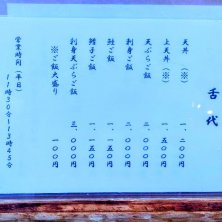 舌代
天丼（※） 一、二〇〇円
上天丼（※） 一、五〇〇円
天ぷらご飯 一、五〇〇円
刺身ご飯 二、〇〇〇円
鮭ご飯 一、一五〇円
帽子ご飯 一、一五〇円
刺身天ぷらご飯 三、〇〇〇円
※ご飯大盛り 一〇〇円
営業時間（平日）
11時30分〜13時45分